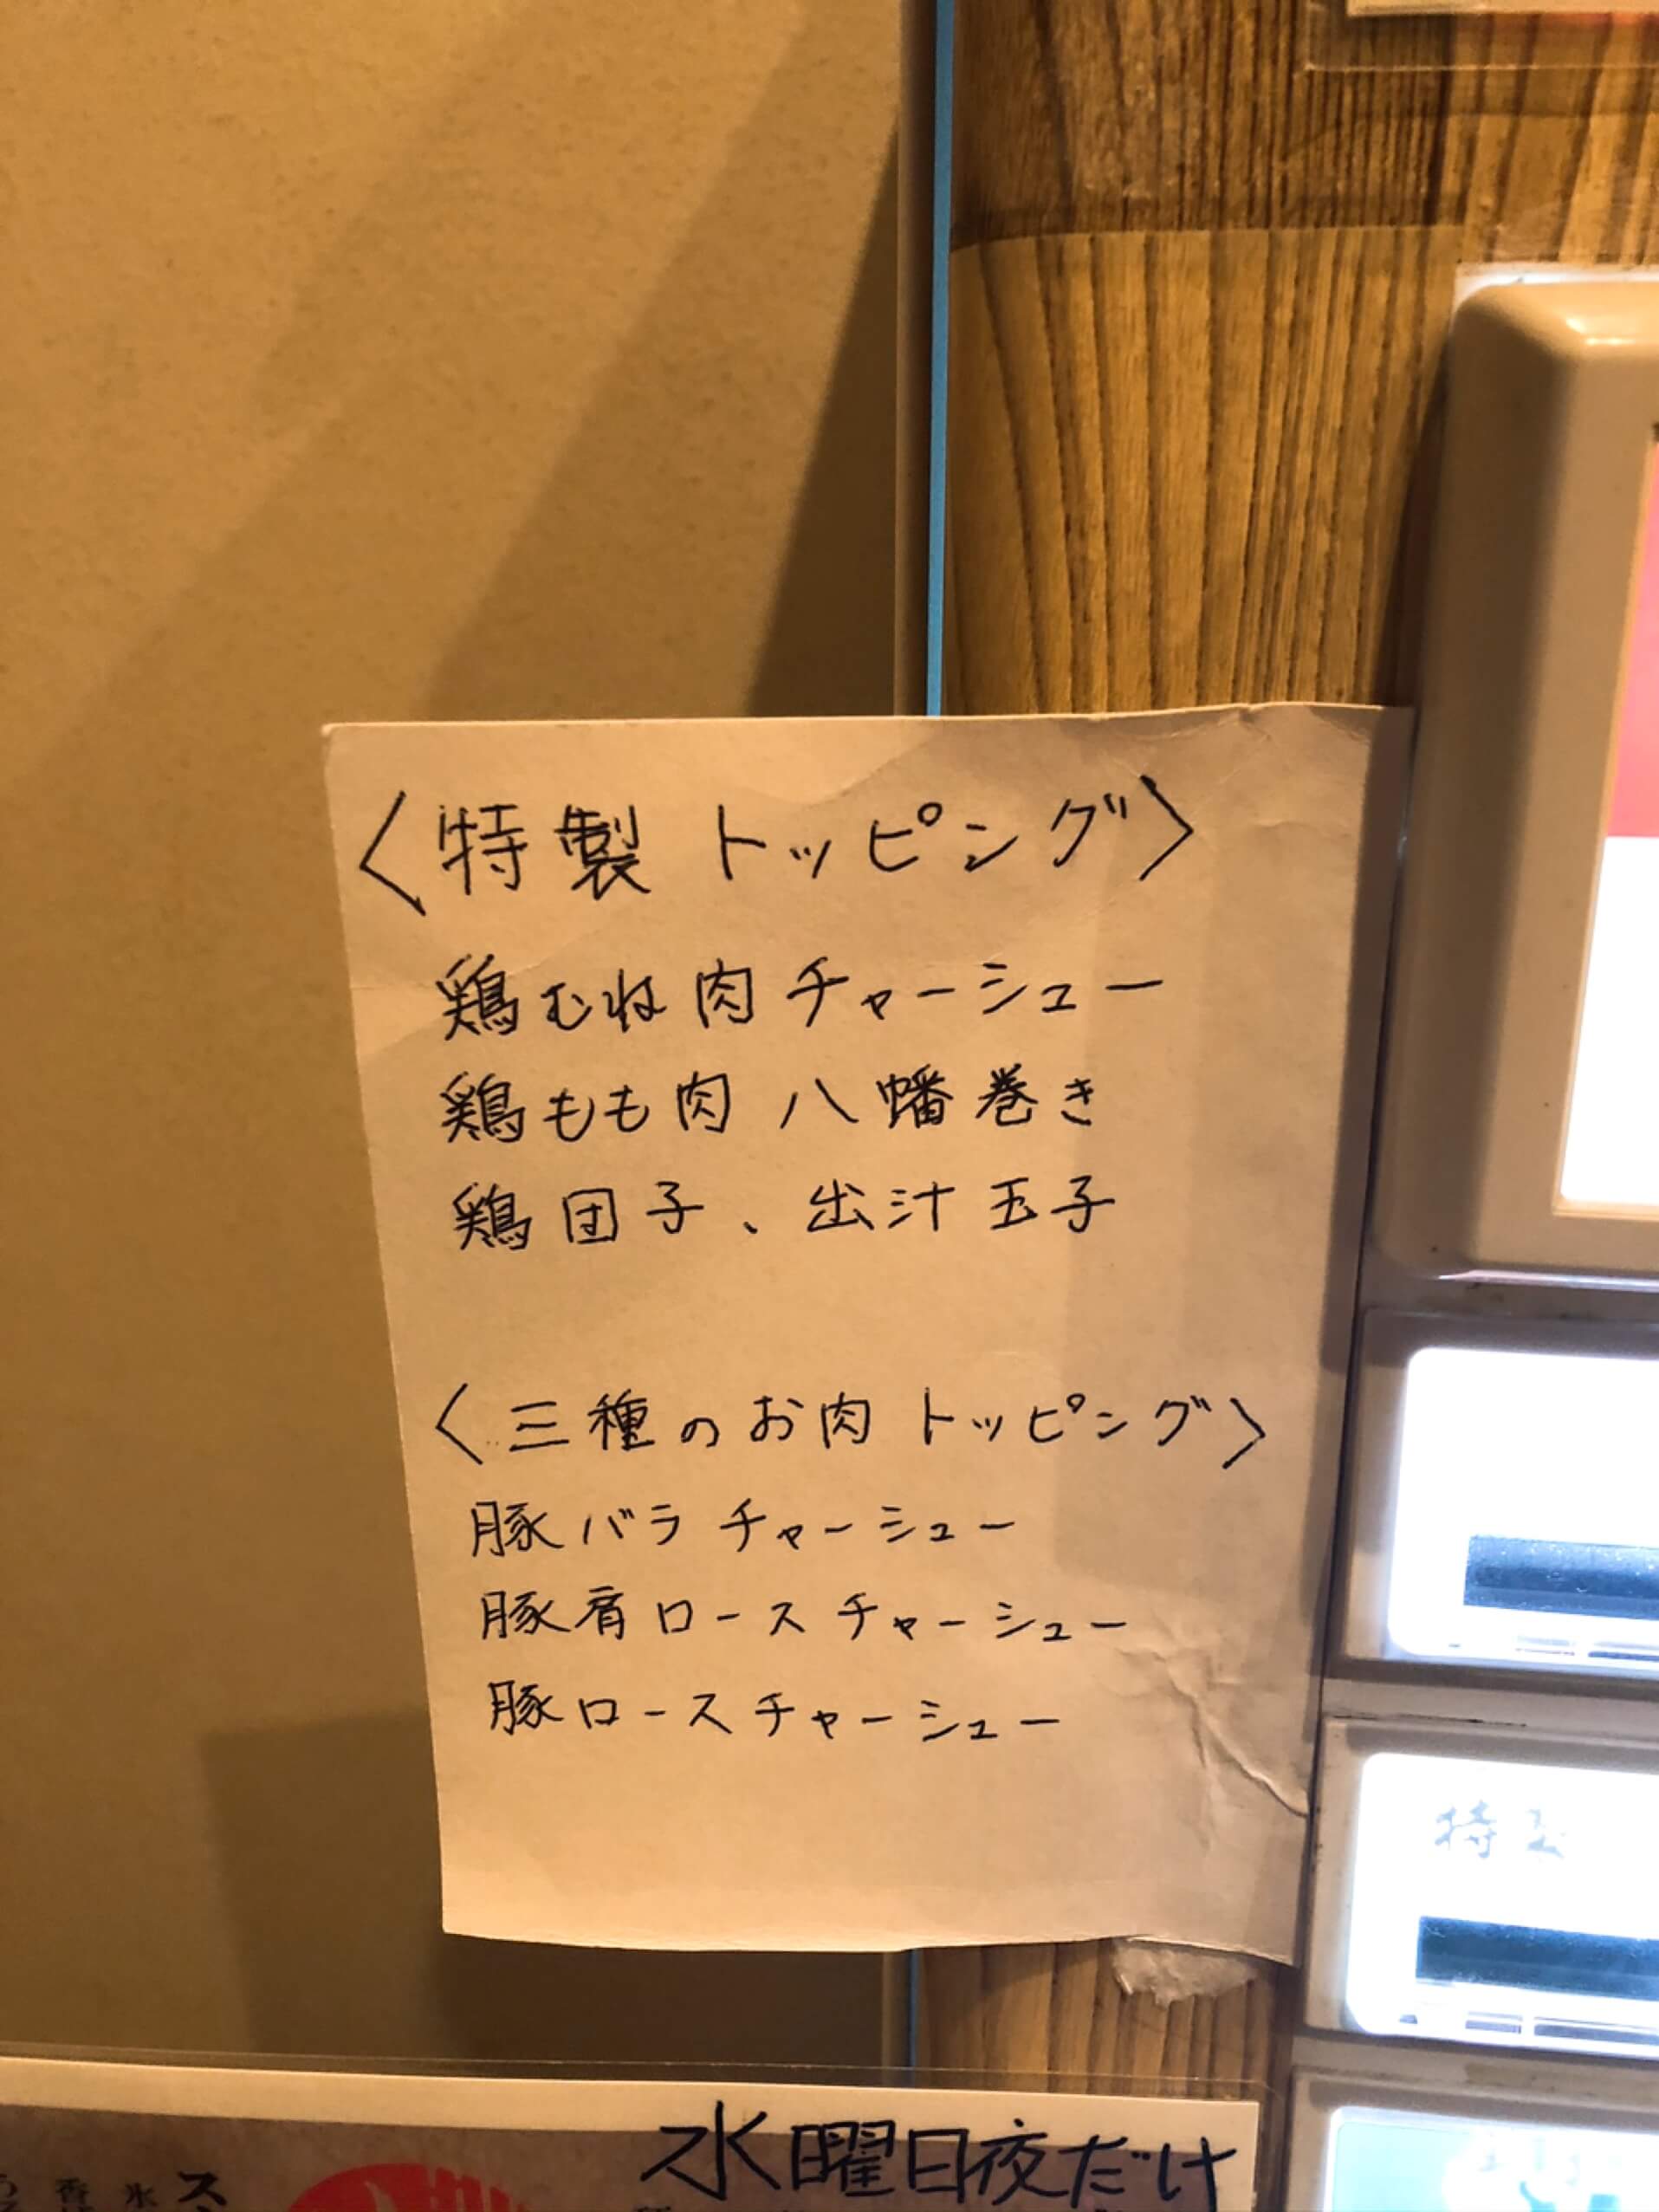 〈特製トッピング〉
鶏むね肉チャーシュー
鶏もも肉八幡巻き
鶏団子、出汁玉子
〈三種のお肉トッピング〉
豚バラチャーシュー
豚肩ロースチャーシュー
豚ロースチャーシュー
特製
水曜日夜だけ